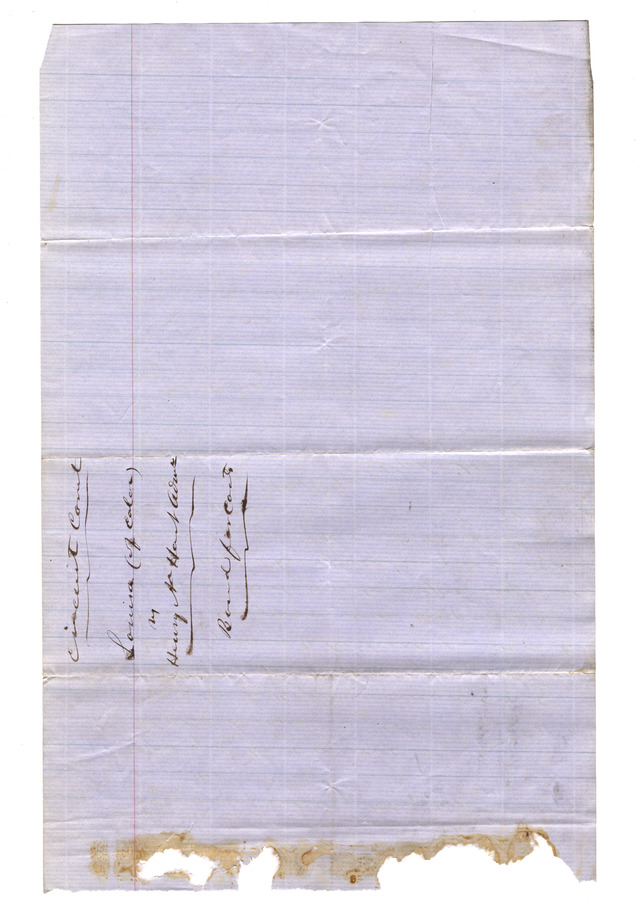 Circuit Court
Louisa (of Color)
vs
Henry N Hart Admr
Bond for Costs